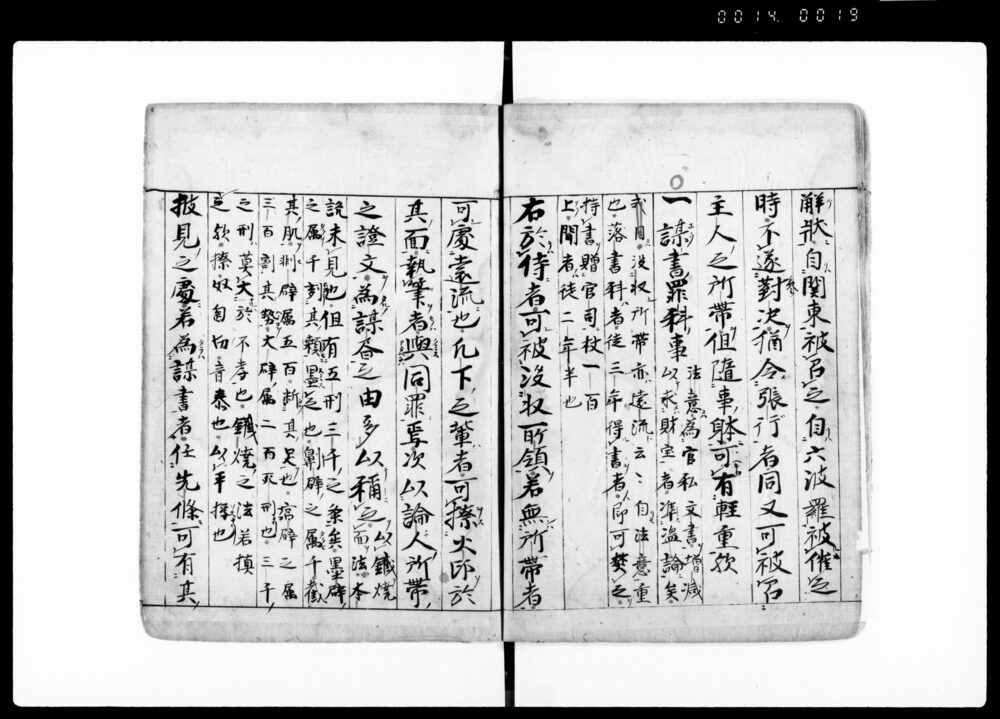 0014. 0019
解状自関東被召之自六波羅被催之
時不遂對决猶令張行者同又可被召
主人之所帯但随事躰可有軽重欤
一 謀書罪科事 法意為官私文書増減
以求財宝者準盗論矣
或月没収所帯亦遠流云〻自法意重
也落書科者徒三年得書者即可焚之
持書贈官司杖一百
上聞者徒二年半也
右於侍者可被没収所領若無所帯者
可處遠流也凡下之輩者可捺火印於
其面執筆者與同罪焉次以論人所帯
之證文為謀書之由多以稱之 以鐵焼
面法本
説未見也但有五刑三千之条矣墨辟
之属千刻其顙墨之也劓辟之属千截
其肌剕辟属五百断其足也宮辟之属
三百割其勢大辟属二百死刑也三千
之刑莫大於不孝也鐵焼之法若摸
之欤捺奴自切音泰也以手捺也
披見之處若為謀書者任先條可有其